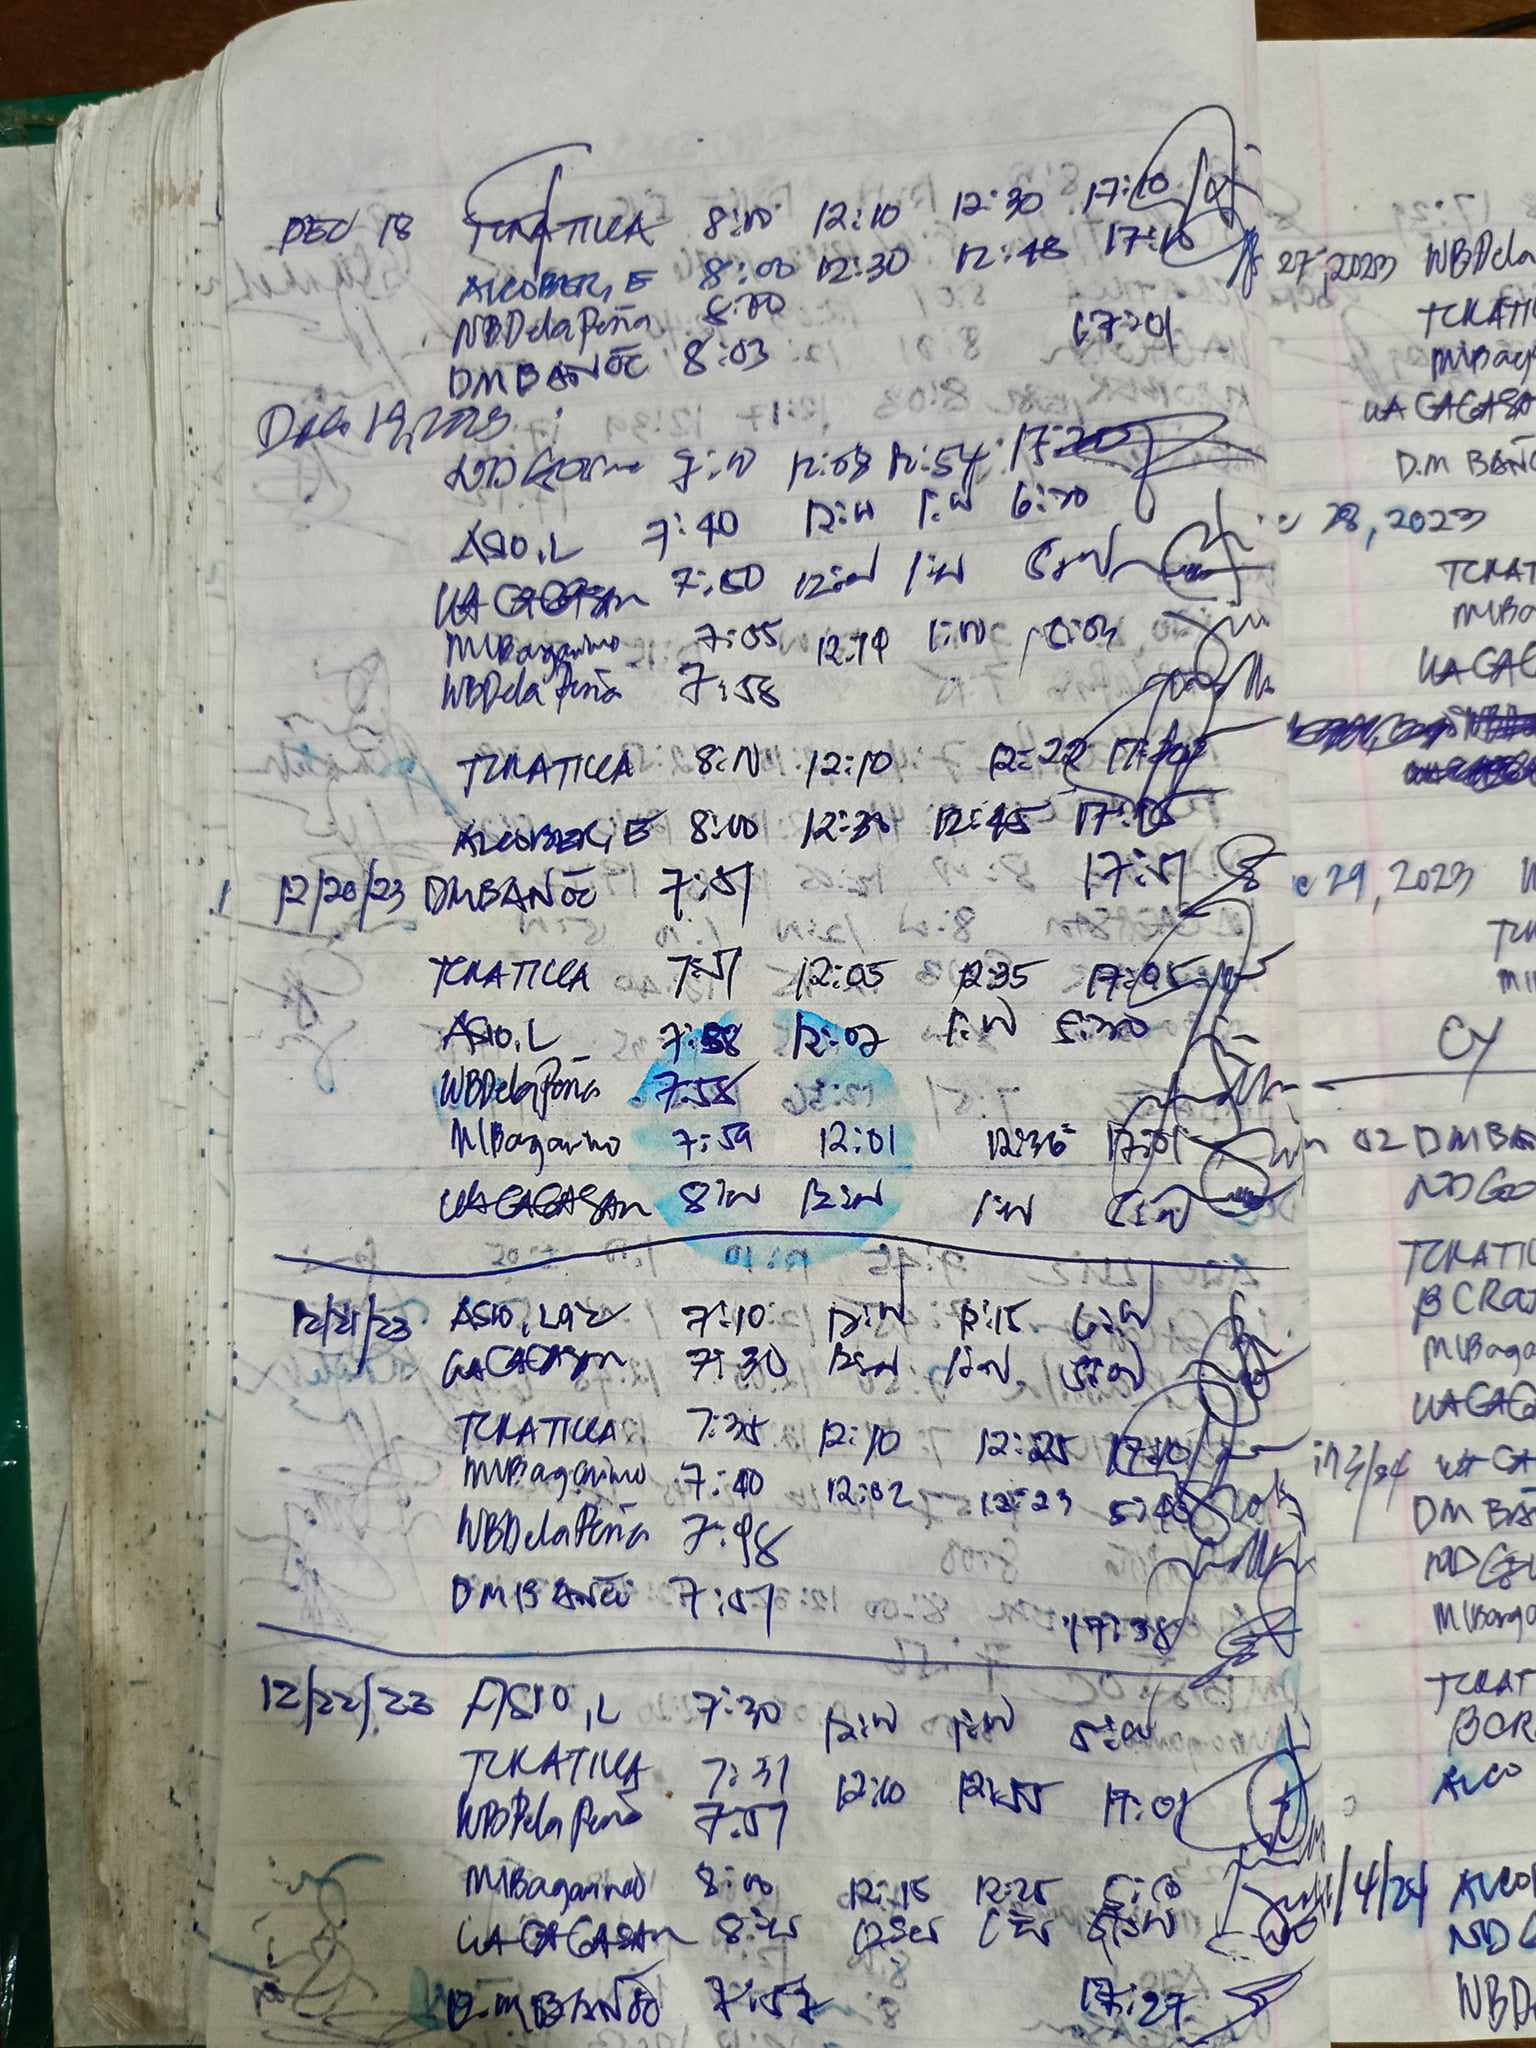 DEC 18 TCRATILLA 8:00 12:10 12:30 17:10
ALCOBER, E 8:00 12:30 12:48 17:10
WBDelaPeña 8:00
DMBAÑOC 8:03 17:01
Dec 19, 2023
12:08 12:54 17:20
ASIO, L 7:40 12:00 1:00 6:20
UACAGASAN 7:50 12:00 1:00 5:00
MIBagarino 7:05 12:14 1:00
WBDelaPeña 7:58
TCRATILLA 8:00 12:10 12:22
ALCOBER, E 8:00 12:30 12:45 17:05
12/20/23 DMBAÑOC 7:51 17:51
TCRATILLA 7:51 12:05 12:35 17:05
ASIO, L 7:58 12:02 1:00 5:20
WBDelaPeña 7:58
MIBagarino 7:59 12:01 12:36 17:01
UACAGASAN 8:00 12:00 1:00 5:00
12/21/23 ASIO, 7:10 12:00 12:15 6:00
UACAGASAN 7:30 12:00 1:00 5:00
TCRATILLA 7:35 12:10 12:25 17:10
MIBagarino 7:40 12:02 12:23 5:40
WBDelaPeña 7:48
DMBAÑOC 7:51 17:38
12/22/23 ASIO, L 7:30 12:00 1:00 5:00
TCRATILLA 7:31 12:10 12:55 17:01
WBDelaPeña 7:51
MIBagarino 8:00 12:15 12:25 5:10
UACAGASAN 8:00 12:00 1:00 5:00
D.MBAÑOC 7:57 17:27
27, 2023 WBDela
TCRATI
MIBag
UACAGASA
D.M BAÑO
28, 2023
TCRAT
MIBa
UACAG
29, 2023 W
TCR
MI
CY
02 DMBAÑ
NDGO
TCRATI
BCRA
MIBaga
UACAG
3/24 UACA
DMBA
NDG
MIBaga
TCRAT
BCR
ALCO
1/4/24 ALCO
NDG
WBD